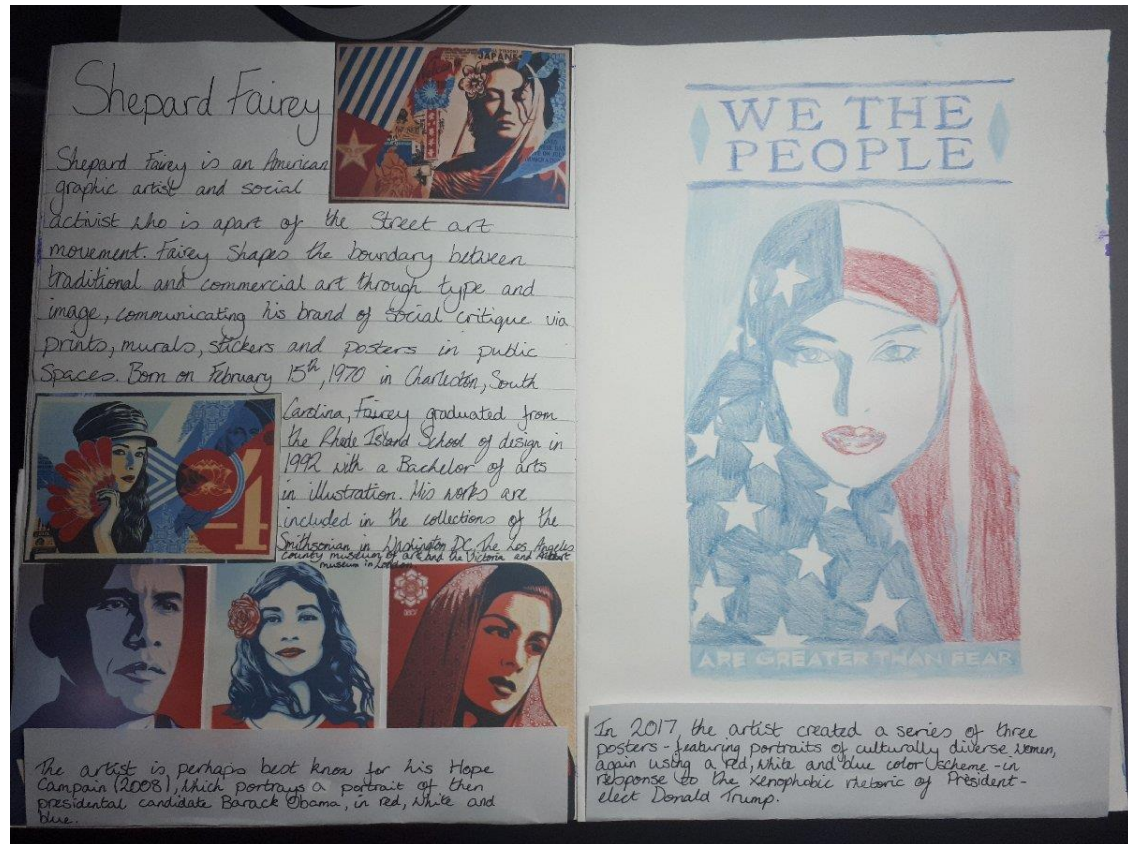 Shepard Fairey
JAPANE
Shepard Fairey is an American
graphic artist and social
activist who is apart of the Street art
movement. Fairey shapes the boundary between
traditional and commercial art through type and
image, communicating his brand of social critique via
prints, murals, stickers and posters in public
spaces. Born on February 15th, 1970 in Charleston, South
Carolina, Fairey graduated from
the Rhode Island School of design in
1992 with a Bachelor of arts
in illustration. His works are
included in the collections of the
Smithsonian in Washington DC, The Los Angeles
county museum of art and the Victoria and Albert
museum in London
4
The artist is perhaps best know for his Hope
Campain (2008), which portrays a portrait of then
presidential candidate Barack Obama, in red, white and
blue.
WE THE
PEOPLE
ARE GREATER THAN FEAR
In 2017, the artist created a series of three
posters - featuring portraits of culturally diverse women,
again using a red, white and blue color scheme - in
response to the xenophobic rhetoric of President-
elect Donald Trump.